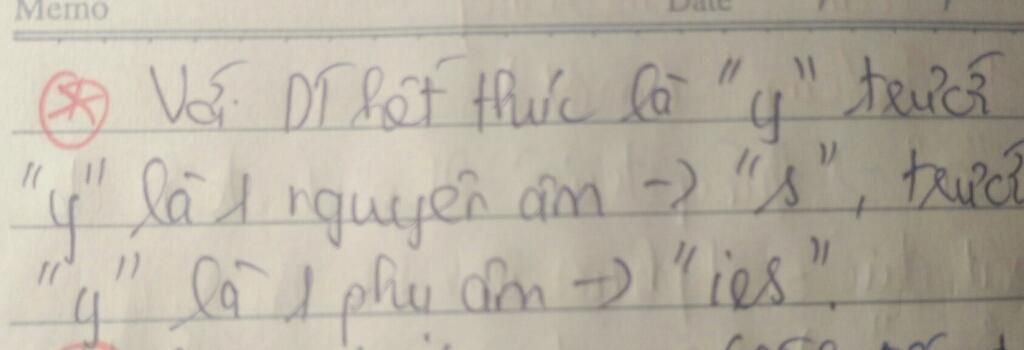 Memo Date
Với DT kết thúc là "y" trước
"y" là 1 nguyên âm → "s", trước
"y" là 1 phụ âm → "ies".